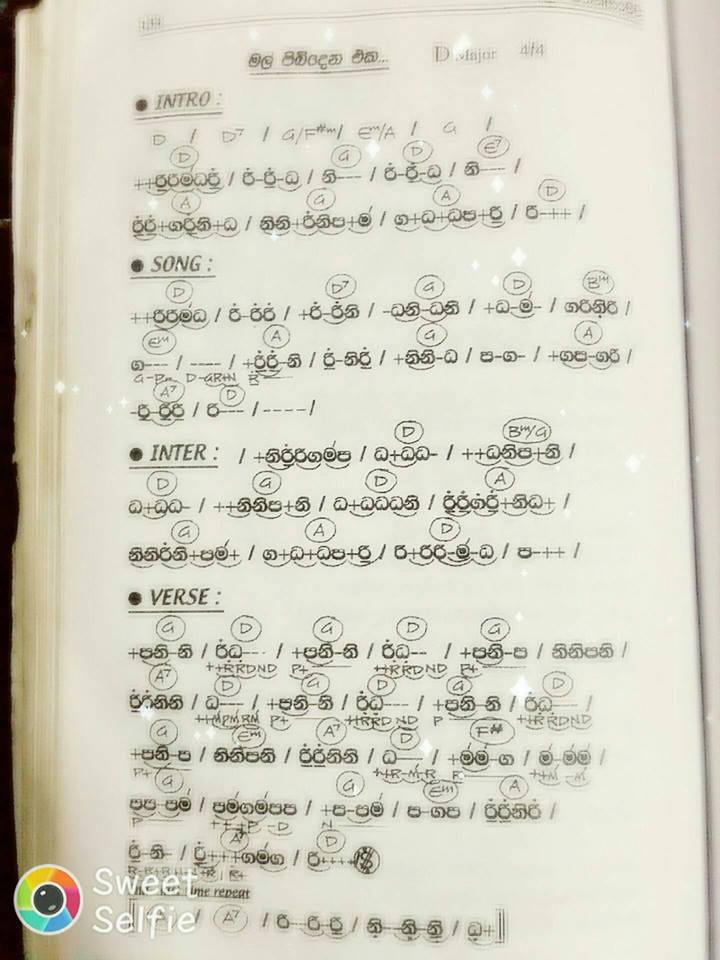 144
මල් පිබිදෙන එක... D Major 4/4
● INTRO :
D / D7 / G/F#m / Em/A / G /
D G D E7
++රිරිමධරි / රි-රි-ධ / නි--- / රි-රි-ධ / නි--- /
A G A D
රිරි+ගරිනි+ධ / නිනි+රිනිප+ම / ග+ධ+ධප+රි / රි-++ /
● SONG :
D D7 G D Bm
++රිරිමධ / රි-රිරි / +රි-රිනි / -ධනි-ධනි / +ධ-ම- / ගරිනිරි /
Em A G A
ග--- / ---- / +රිරි-නි / රි-නිරි / +නිනි-ධ / ප-ග- / +ගප-ගරි /
A7 D
-රි-රිරි / රි--- / ---- /
● INTER : D Bm/G
/ +නිරිරිගමප / ධ+ධධ- / ++ධනිප+නි /
D G D A
ධ+ධධ- / ++නිනිප+නි / ධ+ධධධනි / රිරිගරි+නිධ+ /
G A D
නිනිරිනි+පම+ / ග+ධ+ධප+රි / රි+රිරි-ම-ධ / ප-++ /
● VERSE :
G D G D G
+පනි-නි / රිධ--- / +පනි-නි / රිධ-- / +පනි-ප / නිනිපනි /
++RRDND P+ ++RRDND P+
A7 D G D G D
රිරිනිනි / ධ--- / +පනි-නි / රිධ--- / +පනි-නි / රිධ--- /
++MPMRM P+ ++RRDND P ++RRDND
G Em A7 D F#
+පනි-ප / නිනිපනි / රිරිනිනි / ධ--- / +මම-ග / ම-මම /
P+ ++R-M-R R ++M-M
G G Em A
පප-පම / පමගමපප / +ප-පම / ප-ගප / රිරිනිරි /
A7 D
රි-නි- / රි+++ගමග / රි-+++
time repeat
A7 / රි-රි-රි / නි-නි-නි / ධ+
Sweet
Selfie